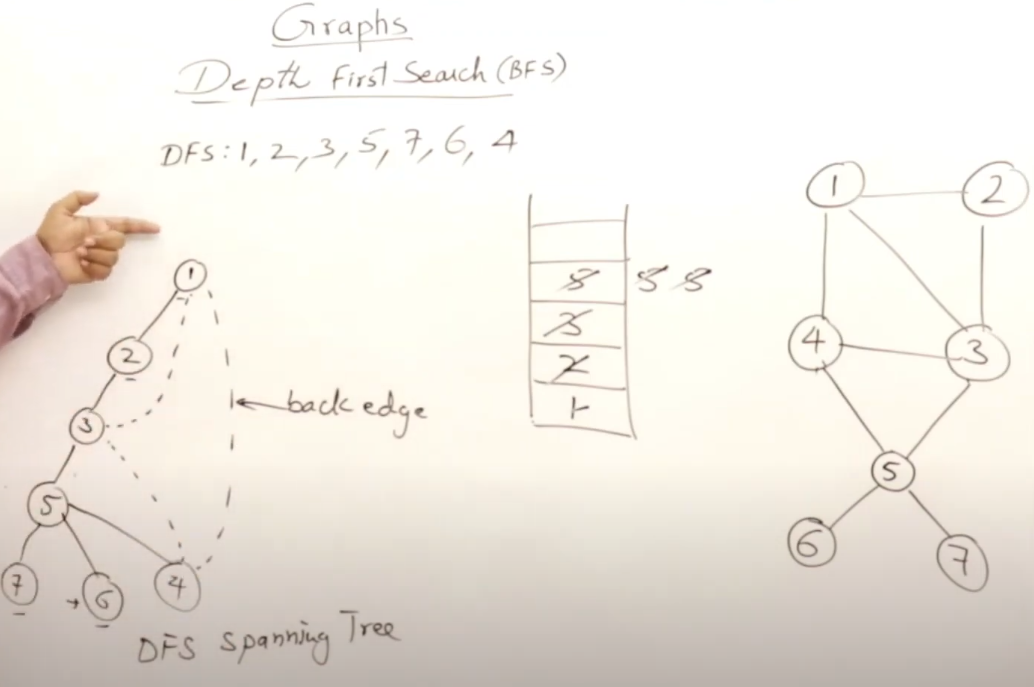 Graphs
Depth First Search (BFS)
DFS: 1, 2, 3, 5, 7, 6, 4
1
2
3
5
7
6
4
back edge
DFS Spanning Tree
5 5 5
3
2
1
1
2
4
3
5
6
7